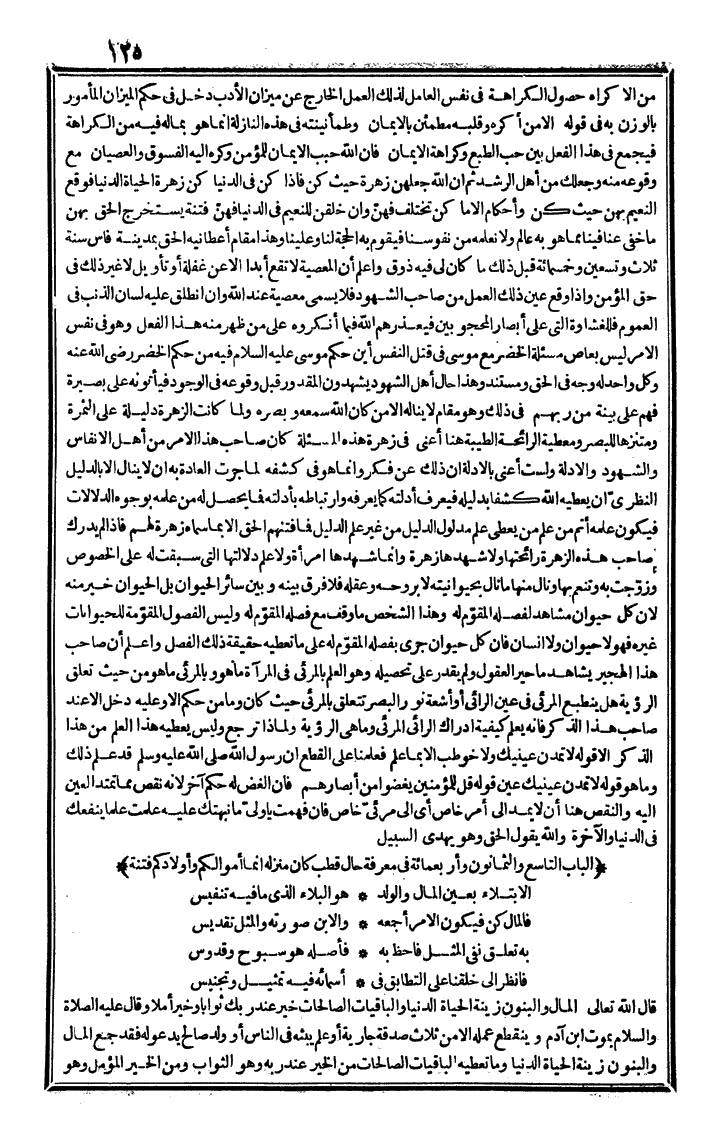 ١٢٥
من الاكراه حصول الكراهة فى نفس العامل لذلك العمل الخارج عن ميزان الأدب دخل فى حكم الميزان المأمور
بالوزن به فى قوله الامن أكره وقلبه مطمئن بالايمان وطمأنينته فى هذه النازلة انماهو بماله فيه من الكراهة
فيجمع فى هذا الفعل بين حب الطبع وكراهة الايمان فان الله حبب الايمان للمؤمن وكره اليه الفسوق والعصيان مع
وقوعه منه وجعلك من أهل الرشد ثم ان الله جعلهن زهرة حيث كن فاذا كن فى الدنيا كن زهرة الحياة الدنيا فوقع
النعيم بهن حيث كن وأحكام الاماكن تختلف فهن وان خلقن للنعيم فى الدنيا فهن فتنة يستخرج الحق بهن
ماخفى عنافينامماهو به عالم ولا نعلمه من نفوسنا فيقوم به الحجة لنا وعلينا وهذا مقام أعطانيه الحق بمدينة فاس سنة
ثلاث وتسعين وخمسمائة قبل ذلك ما كان لى فيه ذوق واعلم أن المعصية لا تقع أبدا الا عن غفلة أو تأويل لاغير ذلك فى
حق المؤمن واذا وقع عين ذلك العمل من صاحب الشهود فلا يسمى معصية عند الله وان انطلق عليه لسان الذنب فى
العموم فللغشاوة التى على أبصار المحجوبين فيعذرهم الله فيما أنكروه على من ظهر منه هذا الفعل وهو فى نفس
الامر ليس بعاص مسئلة الخضر مع موسى فى قتل النفس أين حكم موسى عليه السلام فيه من حكم الخضر رضى الله عنه
وكل واحد له وجه فى الحق ومستند وهذا حال أهل الشهود يشهدون المقدور قبل وقوعه فى الوجود فيأتونه على بصيرة
فهم على بينة من ربهم فى ذلك وهو مقام لايناله الامن كان الله سمعه وبصره ولما كانت الزهرة دليلة على الثمرة
ومتنزها للبصر ومعطية الرائحة الطيبة هنا أعنى فى زهرة هذه المسئلة كان صاحب هذا الامر من أهل الانفاس
والشهود والادلة ولست أعنى بالادلة ان ذلك عن فكر وانماهو فى كشفه لما جرت العادة به ان لاينال الا بالدليل
النظرى ان يعطيه الله كشفا بدليله فيعرف أدلته كما يعرفه وارتباطه بأدلته فما يحصل له من علمه بوجوه الدلالات
فيكون علمه أتم من علم من يعطى علم مدلول الدليل من غير علم الدليل فافتنهم الحق الا بماسماه زهرة لهم فاذا لم يدرك
صاحب هذه الزهرة رائحتها ولا شهدها زهرة وانما شهدها امرأة ولا علم دلالتها التى سبقت له على الخصوص
وزوّجت به وتنعم بها ونال منها مانال بحيوانيته لا بروحه وعقله فلا فرق بينه وبين سائر الحيوان بل الحيوان خير منه
لان كل حيوان مشاهد لفصله المقوّم له وهذا الشخص ماوقف مع فصله المقوّم له وليس الفصول المقوّمة للحيوانات
غيره فهو لاحيوان ولا انسان فان كل حيوان جرى بفصله المقوّم له على ماتعطيه حقيقة ذلك الفصل واعلم أن صاحب
هذا الهجير يشاهد ما حير العقول ولم يقدر على تحصيله وهو العلم بالمرئى فى المرآة ماهو وبالمرئى ماهو من حيث تعلق
الرؤية هل ينطبع المرئى فى عين الرائى أو أشعة نور البصر تتعلق بالمرئى حيث كان وما من حكم الا وعليه دخل الاعند
صاحب هذا الذكر فانه يعلم كيفية ادراك الرائى المرئى وماهى الرؤية ولماذا ترجع وليس يعطيه هذا العلم من هذا
الذكر الا قوله لا تمدن عينيك ولا خوطب الا بما علم فعلمنا على القطع ان رسول الله صلى الله عليه وسلم قد علم ذلك
وماهو قوله لا تمدن عينيك عين قوله قل للمؤمنين يغضوا من أبصارهم فان الغض له حكم آخر لانه نقص مما تمتد العين
اليه والنقص هنا أن لا يمد الى أمر خاص أى الى مرئىّ خاص فان فهمت ياولىّ مانبهتك عليه علمت علما ينفعك
فى الدنيا والآخرة والله يقول الحق وهو يهدى السبيل
﴿الباب التاسع والثمانون وأربعمائة فى معرفة حال قطب كان منزله انما أموالكم وأولادكم فتنة﴾
الابتلاء بعين المال والولد * هو البلاء الذى مافيه تنفيس
فالمال كن فيكون الامر أجمعه * والابن صورته والمثل تقديس
به تعلق نفى المثل فاحظ به * فأصله هو سبوح وقدوس
فانظر الى خلقنا على التطابق فى * أسمائه فيه تمثيل وتجنيس
قال الله تعالى المال والبنون زينة الحياة الدنيا والباقيات الصالحات خير عند ربك ثوابا وخير أملا وقال عليه الصلاة
والسلام يموت ابن آدم وينقطع عمله الامن ثلاث صدقة جارية أو علم يبثه فى الناس أو ولد صالح يدعو له فقد جمع المال
والبنون زينة الحياة الدنيا وماتعطيه الباقيات الصالحات من الخير عند ربه وهو الثواب ومن الخير المؤمل وهو